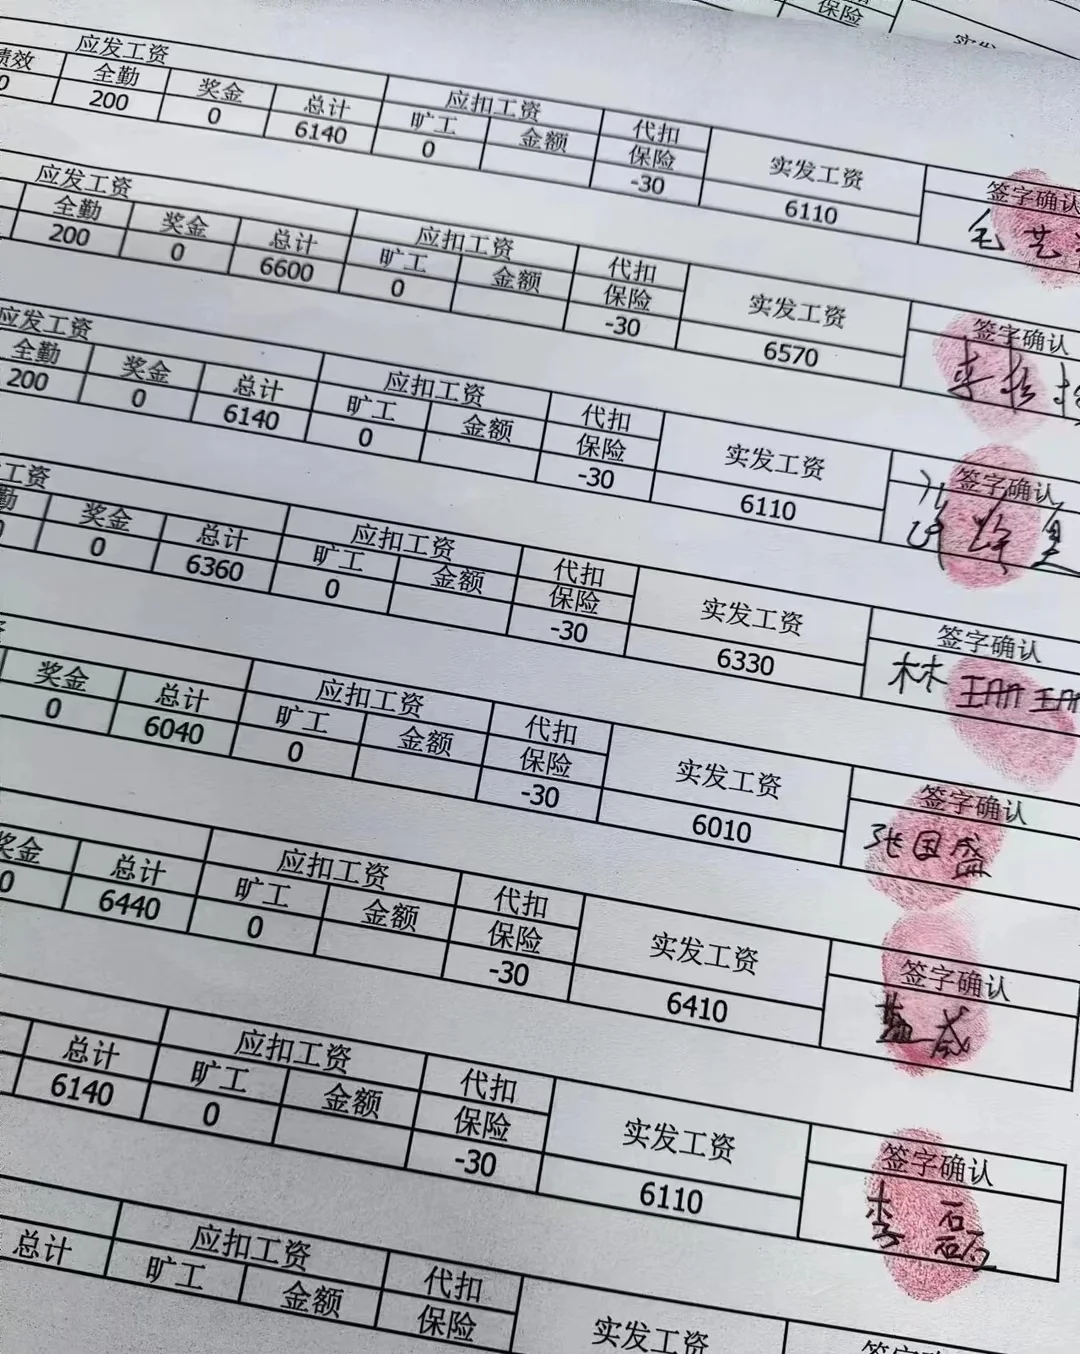 保险
应发工资
绩效 全勤 奖金 总计 应扣工资 代扣
0 200 0 6140 旷工 金额 保险 实发工资 签字确认
0 -30 6110
应发工资
全勤 奖金 总计 应扣工资 代扣
200 0 6600 旷工 金额 保险 实发工资 签字确认
0 -30 6570
应发工资
全勤 奖金 总计 应扣工资 代扣
200 0 6140 旷工 金额 保险 实发工资 签字确认
0 -30 6110
工资
勤 奖金 总计 应扣工资 代扣
0 0 6360 旷工 金额 保险 实发工资 签字确认
0 -30 6330 林珊珊
资
奖金 总计 应扣工资 代扣
0 6040 旷工 金额 保险 实发工资 签字确认
0 -30 6010 张国盛
奖金 总计 应扣工资 代扣
0 6440 旷工 金额 保险 实发工资 签字确认
0 -30 6410
总计 应扣工资 代扣
6140 旷工 金额 保险 实发工资 签字确认
0 -30 6110 李磊
总计 应扣工资 代扣
旷工 金额 保险 实发工资 签字确认